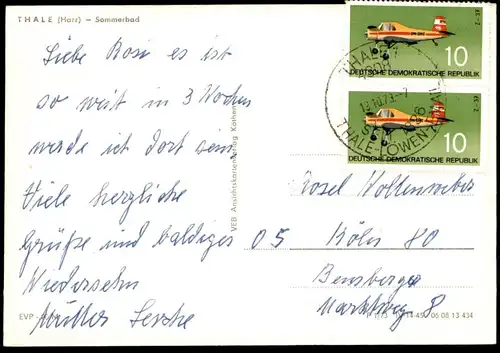 THALE (Harz) – Sommerbad
Liebe Rosi es ist
so weit in 3 Wochen
werde ich dort sein
Viele herzliche
Grüße und baldiges
Wiedersehn
Mutter
EVP
VEB Ansichtskartenverlag Köthen
Z-37
10
DEUTSCHE DEMOKRATISCHE REPUBLIK
Z-37
10
DEUTSCHE DEMOKRATISCHE REPUBLIK
THALE
THALE-LÖWEN
Rosel Woltenweber
05 Köln 80
Bensberger
Marktweg 8
06 08 13 434